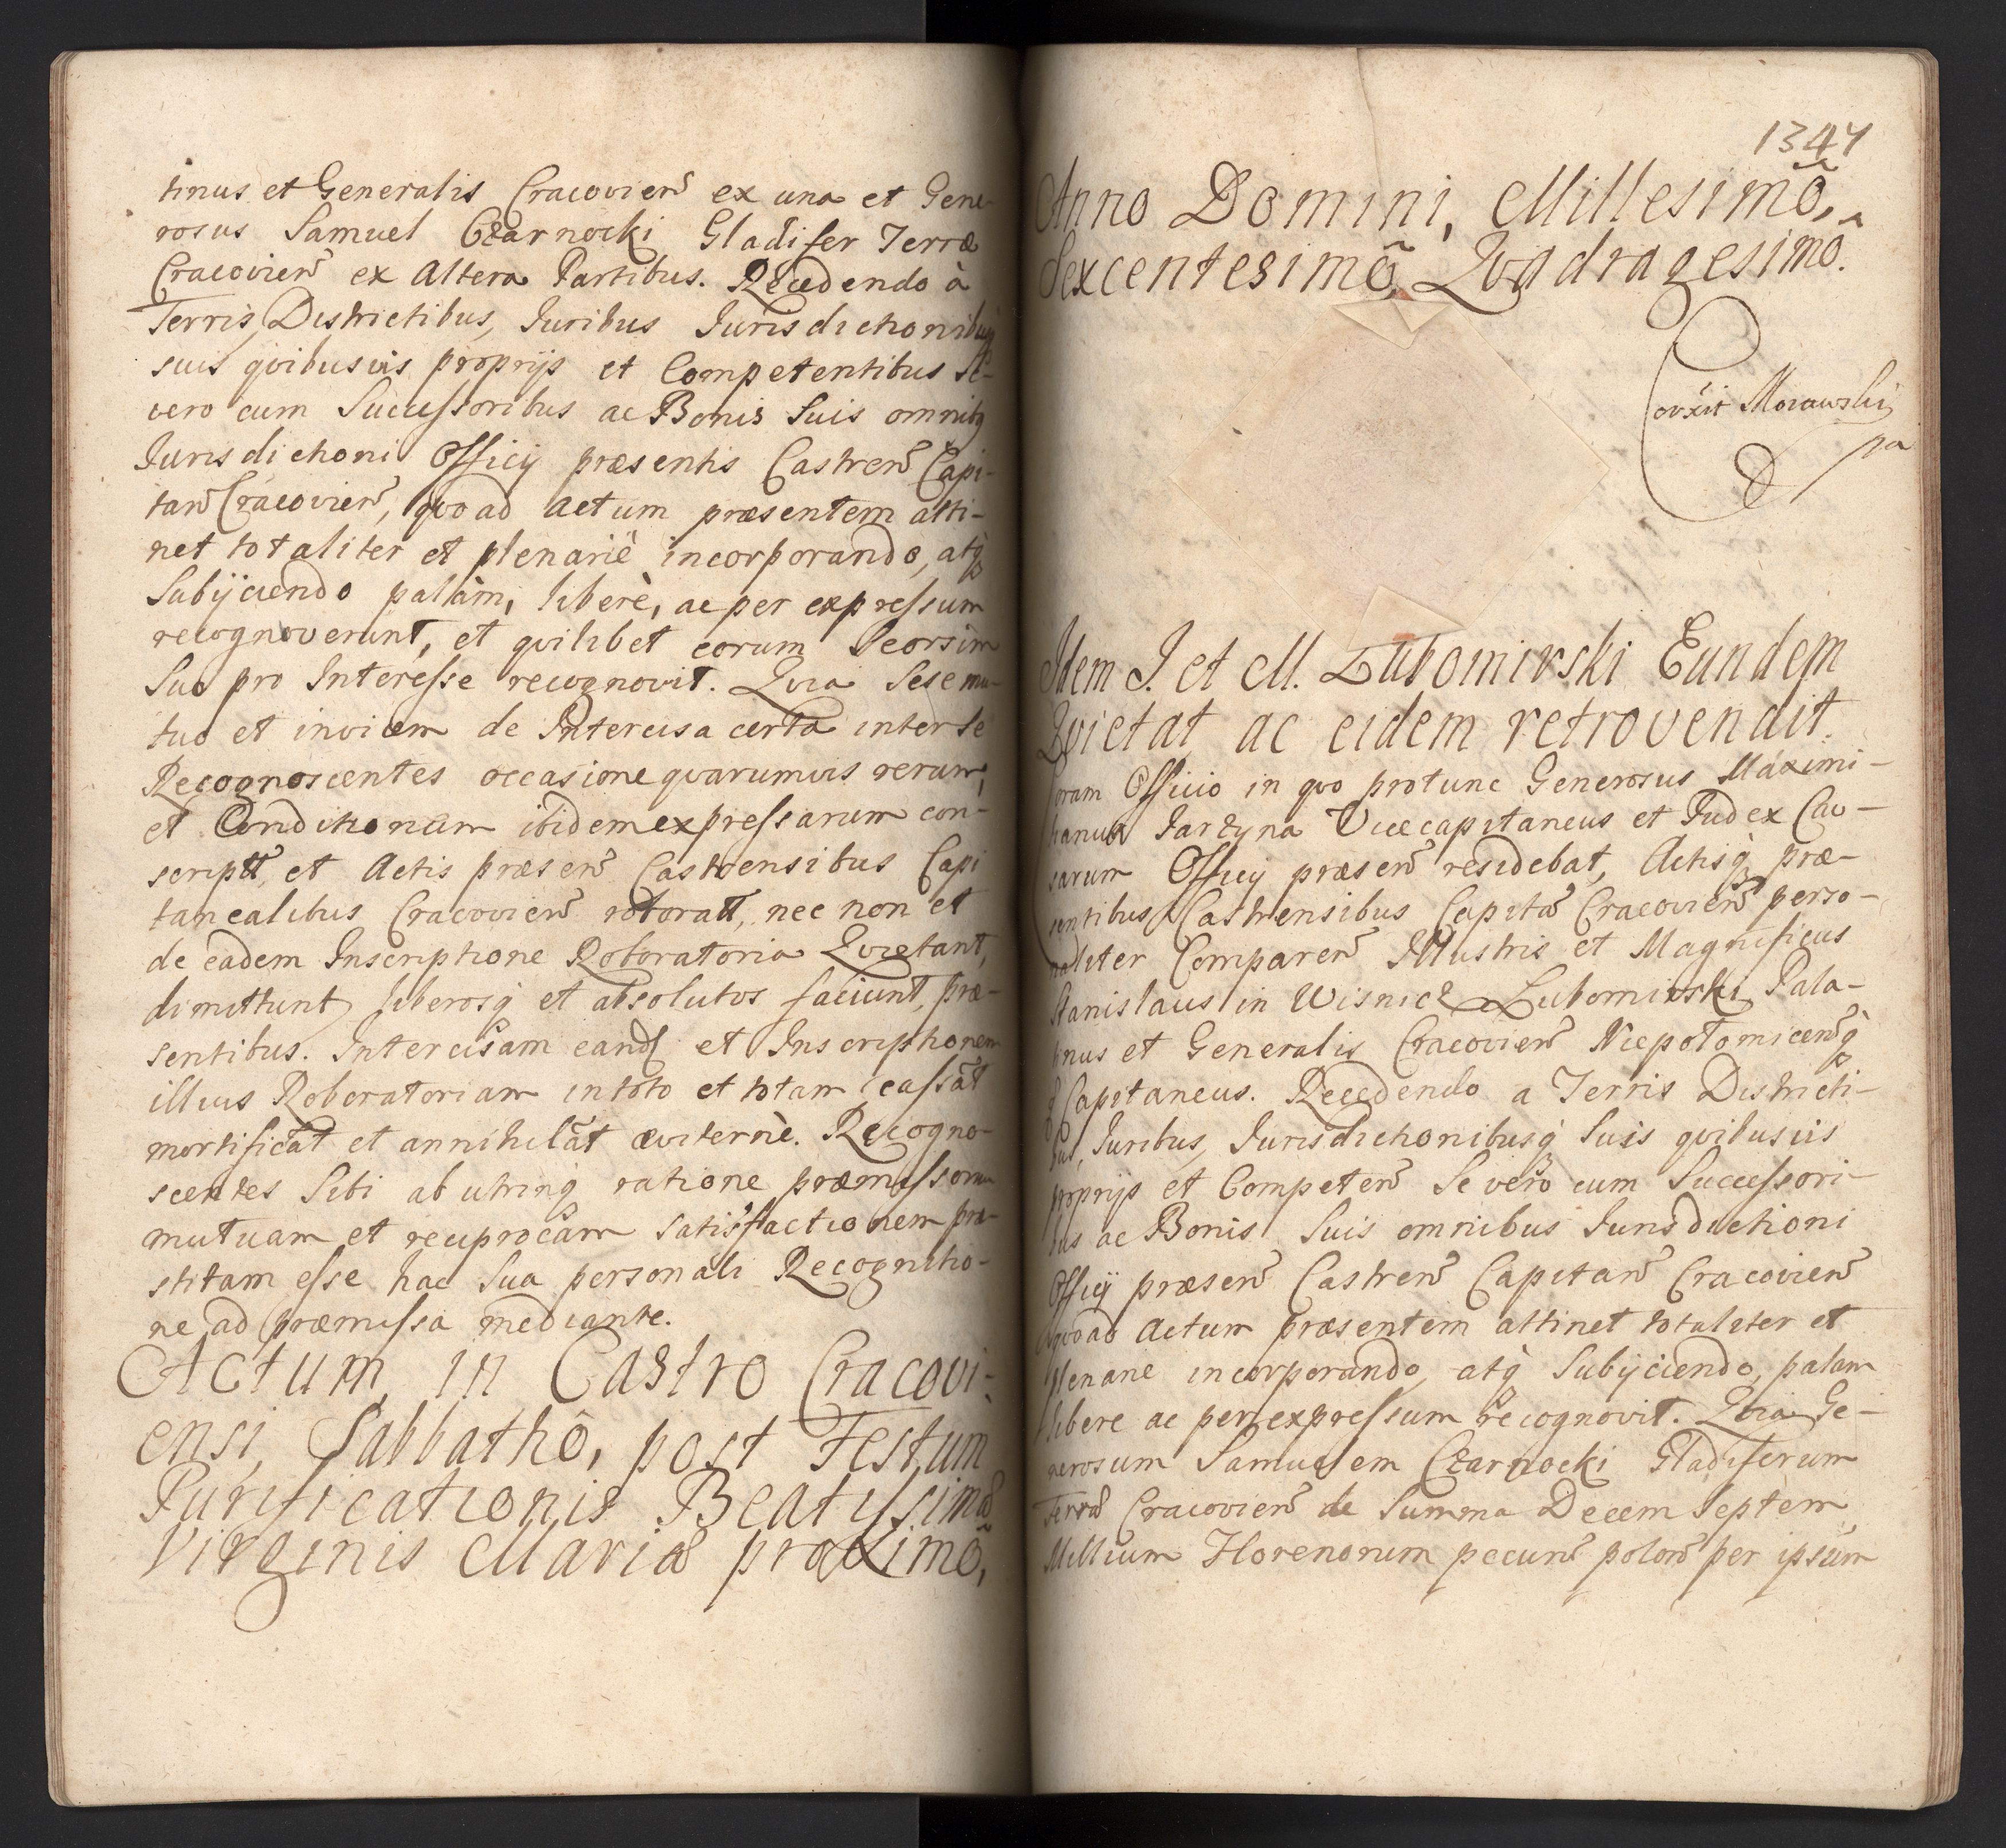 tinus et Generalis Cracovien ex una et Gene-
rosus Samuel Czarnocki Gladifer Terræ
Cracovien ex Altera Partibus. Recedendo à
Terris, Districtibus, Iuribus Iurisdictionibusq
suis qvibusvis proprijs et Competentibus se-
vero cum Successoribus ac Bonis Suis omnibq
Iurisdictioni Officij præsentis Castren Capi-
tan Cracovien, qvoad Actum præsentem atti-
net totaliter et plenariè incorporando, atq
Subijciendo palàm, liberè, ac per expressum
recognoverunt, et qvilibet eorum Seorsim
Suo pro Interesse recognovit. Qvia Sese mu-
tuo et invicem de Intercisa certa inter se
Recognoscentes occasione qvarumvis rerum,
et Conditionum ibidem expressarum con-
scriptt, et Actis præsen Castrensibus Capi
tanealibus Cracovien roboratt, nec non et
de eadem Inscriptione Roboratoria Qvietant,
dimittunt, liberosq et absolutos faciunt, præ-
sentibus. Intercisam eand et Inscriptionem
illius Roboratoriam in toto et totam, cassãt
mortificãt et annihilãt æviternè. Recogno-
scentes Sibi ab utrinq ratione præmissorum
mutuam et reciprocam satisfactionem præ-
stitam esse hac Sua personali Recognitio-
ne ad præmissa mediante.
Actum in Castro Cracovi-
ensi, Sabbathô, post Festum
Purificationis Beatissimæ
Virginis Mariæ proximô,
1347
Anno Domini, Millesimô,
Sexcentesimô, Qvadragesimô.
Corrẽxit Morawski
Idem I. et M. Lubomirski Eundem
Qvietat ac eidem retrovendit.
Coram Officio in qvo protunc Generosus Maximi-
lianus Jarzyna Vicecapitaneus et Iudex Cau-
sarum Officij præsen residebat, Actisq præ-
sentibus Castrensibus Capitan Cracovien perso-
naliter Comparen Illustris et Magnificus
Stanislaus in Wisnicz Lubomirski Pala-
tinus et Generalis Cracovien Niepołomicenq
Capitaneus. Recedendo a Terris Districti-
bus, Iuribus, Iurisdictionibusq Suis qvibusvis
proprijs et Competen Se vero cum Successori-
bus ac Bonis Suis omnibus Iurisdictioni
Officij præsen Castren Capitan Cracovien
qvoad Actum præsentem attinet totaliter et
plenarie incorporando, atq Subijciendo, palam
libere ac per expressum recognovit. Qvia Ge-
nerosum Samuelem Czarnocki Gladiferum
Terræ Cracovien de Summa Decem Septem
Millium Florenorum pecun polon per ipsum